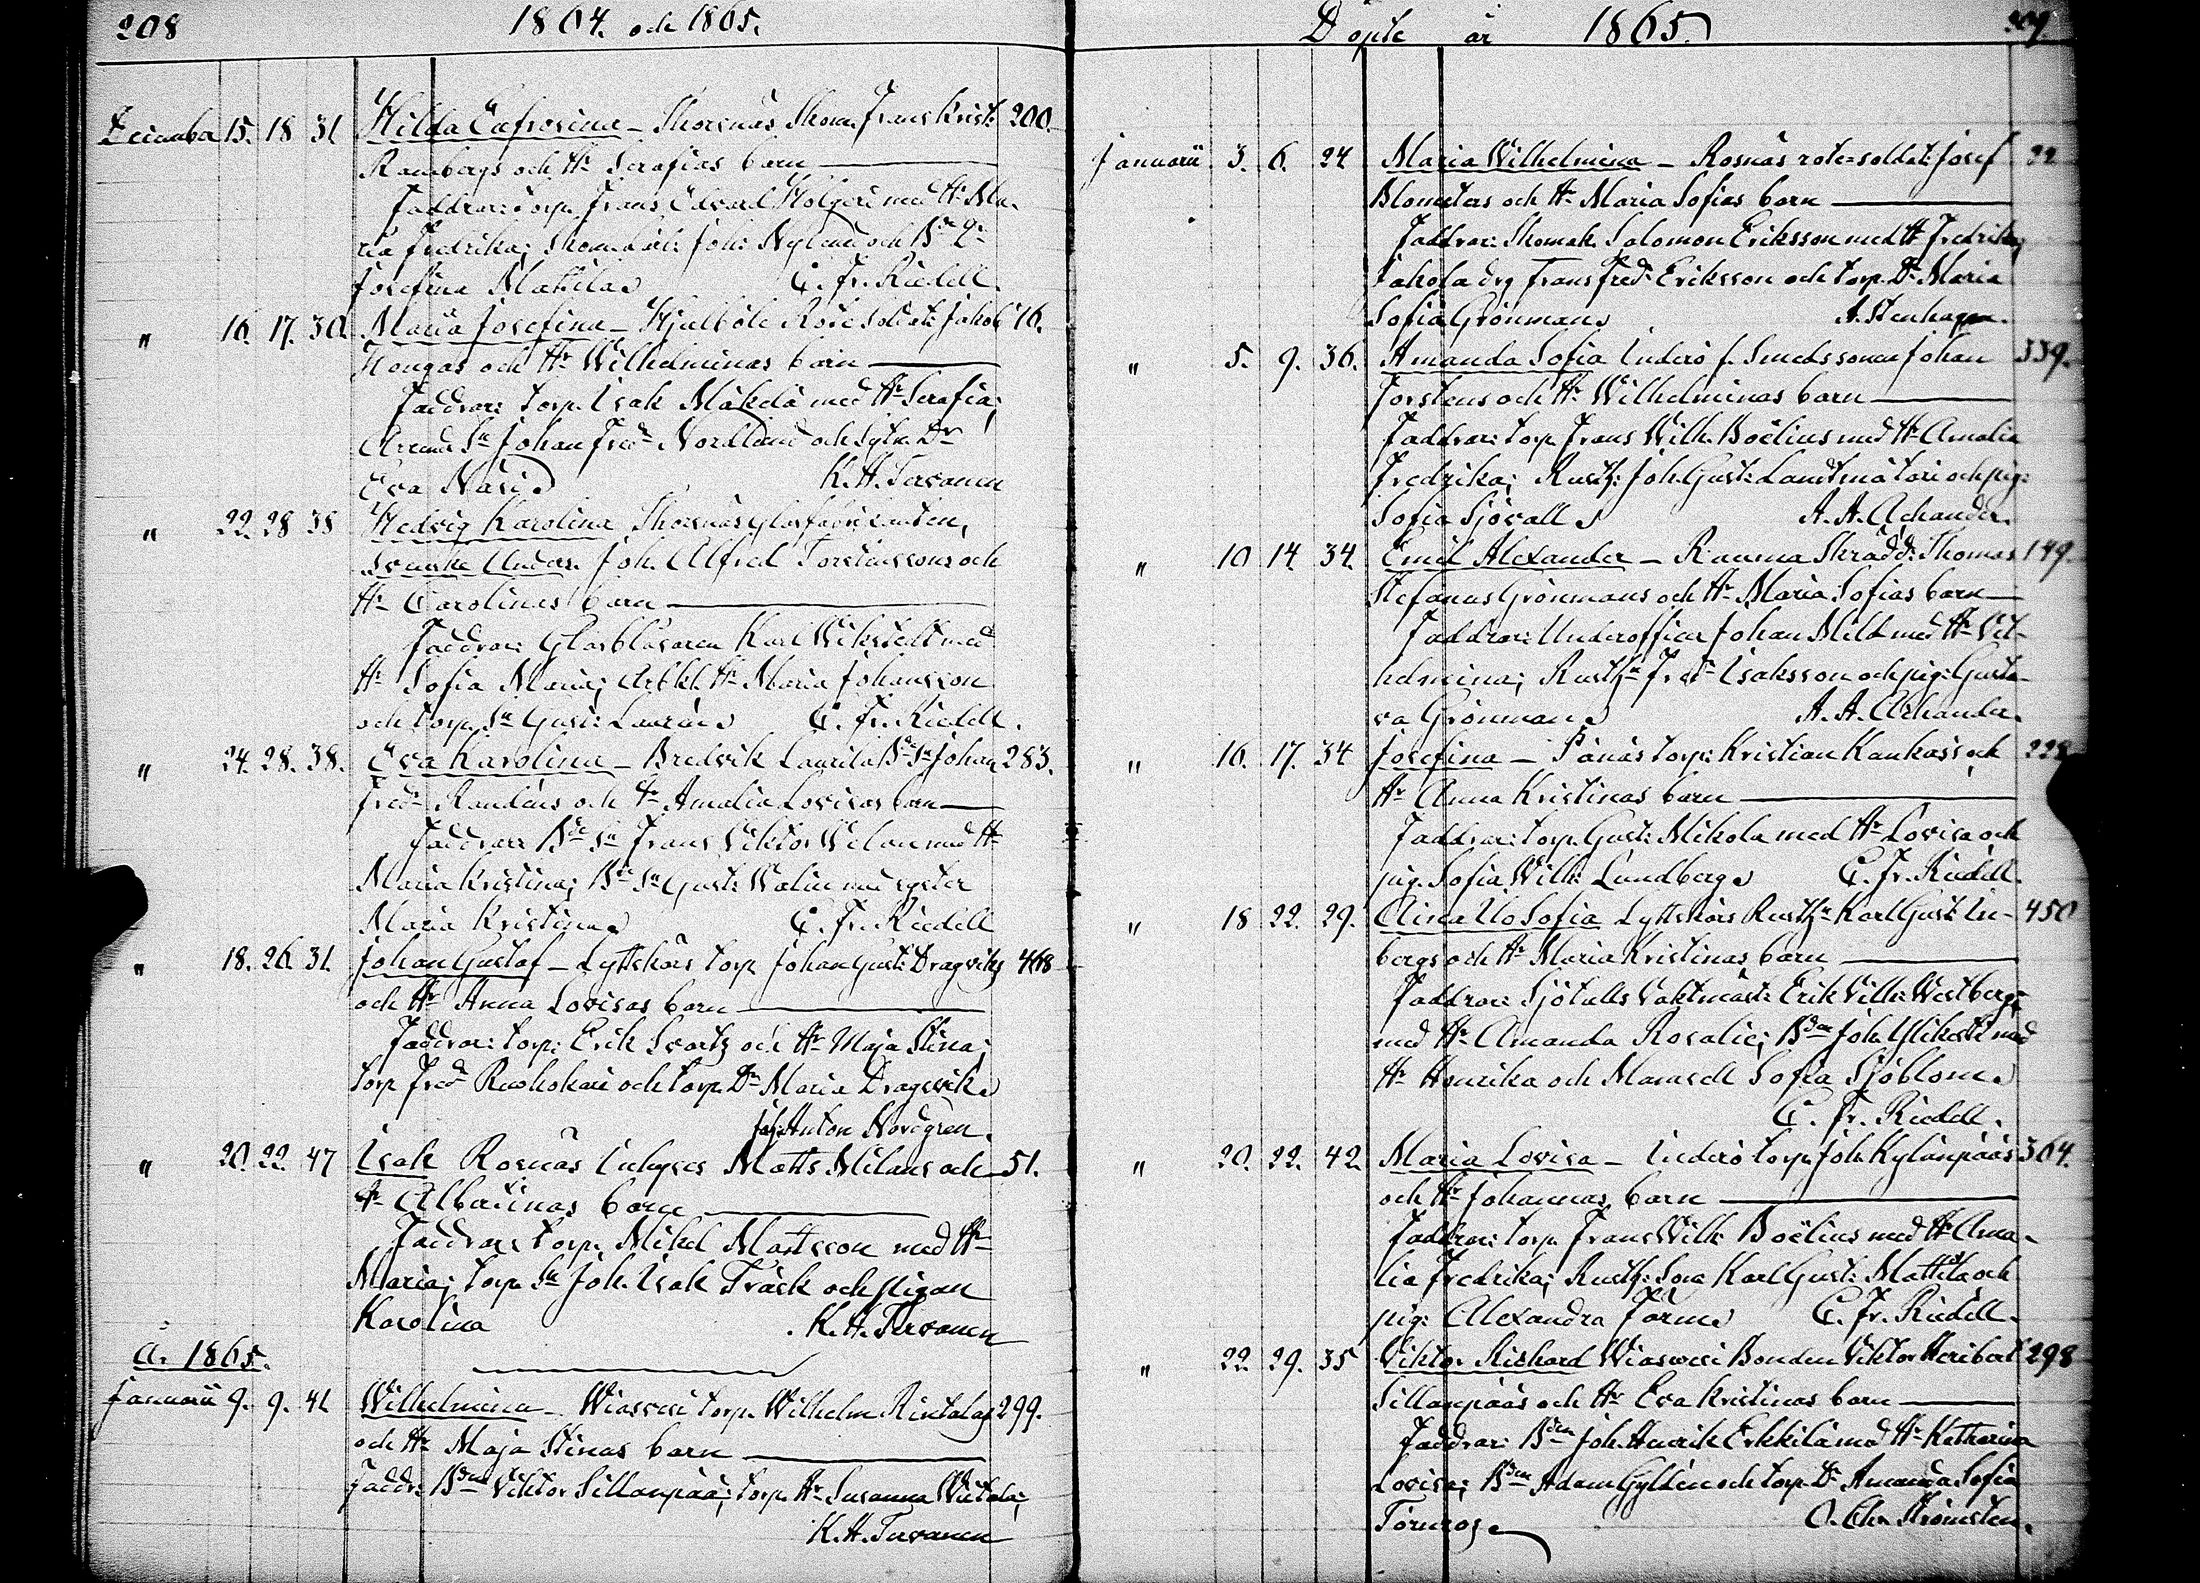 208 1864. och 1865.
December 15. 18 31 Hilda Eufrosina – Thorsnäs Skom. Frans Krist: 200.
Rambergs och Hu Serafias barn
Faddrar: torp. Frans Edvard Holgeri med Hu Ma-
ria Fredrika; Skom. Lärl: Joh: Nylund och
Josefina Matilda C. Fr. Riedell.
" 16. 17. 30. Maria Josefina – Hjulböle Rote Soldat: Jakob 16.
Hongas och Hu Wilhelminas barn
Faddrar: torp. Isak Mäkelä med Hu Serafia;
Arrend. Sn Johan Fredr Nordlund och Dr
Eva K. H. Tervonen
" 22. 28 38 Hedvig Karolina Thorsnäs Glasfabrikanten,
Svenske Unders. Joh. Alfred Torstenssons och
Hu Carolinas barn
Faddrar: Glasblåsaren Karl Wikstedt med
Hu Sofia Maria; Hu Maria Johansson
och torp. Sn Gust: Laurén C. Fr. Riedell.
" 24. 28. 38. Eva Karolina – Bredvik Laurila Bde Sn Johan 283.
Fredr Randéns och Hu Amalia Lovisas barn
Faddrar: Bde Sn Frans Viktor Welan med Hu
Maria Kristina; Bde Sn Gust: Walin med syster
Maria Kristina C. Fr. Riedell
" 18. 26. 31. Johan Gustaf – Lyttskärs torp. Johan Gust: Dragsviks 468
och Hu Anna Lovisas barn
Faddrar: torp: Erik Svartz och Hu Maja Stina;
torp. Fredr Ruohokari och torp. Dr Maria Dragsvik
Joh: Anton Nordgren.
" 20. 22. 47 Isak Rosnäs Inhyses Matts Milans och 51.
Hu Albertinas barn
Faddrar: torp. Mikel Mattsson med Hu
Maria; torp. Sn Joh. Isak Träsk och pigan
Karolina K. H. Tervonen
År 1865.
Januarii 9. 9. 41 Wilhelmina – Wiasvesi torp. Wilhelm Rintalas 299.
och Hu Maja Stinas barn
Faddr: Bden Viktor Sillanpää; torp. Hu Susanna
K. H. Tervonen
Döpte år 1865. 209.
Januarii 3. 6. 24 Maria Wilhelmina – Rosnäs rote-soldat: Josef 22
Blomsters och Hu Maria Sofias barn
Faddrar: Skomak. Salomon Eriksson med Hu Fredrika;
Jakola drg Frans Fred: Eriksson och torp. Dr Maria
Sofia Grönman A. Stenhagen.
" 5. 9. 36. Amanda Sofia Inderö f. Smedssonen Johan 339.
Forstens och Hu Wilhelminas barn
Faddrar: torp. Frans Wilh. Boëlius med Hu Amalia
Fredrika; Rusth: Joh. Gust: Landtmäteri och pig:
Sofia Sjövall A. A. Achander.
" 10 14 34. Emil Alexander – Rauma Skrädd: Thomas 149.
Stefanus Grönmans och Hu Maria Sofias barn
Faddrar: Underofficer Johan Meld med Hu Vil-
helmina; Rusth Fredr Isaksson och pig: Gusta-
va Grönman A. A. Achander.
" 16. 17. 34 Josefina – Sånäs torp: Kristian Kankas och 228
Hu Anna Kristinas barn
Faddrar: torp. Gust: Mikola med Hu Lovisa och
pig. Sofia Wilh: Lundberg C. Fr. Riedell.
" 18 22. 29. Aina Ilo Sofia Lyttskärs Rusth Karl Gust: In- 450
bergs och Hu Maria Kristinas barn
Faddrar: Sjötulls Vaktmäst: Erik Vilh: Westberg;
med Hu Amanda Rosalie; Bden Joh. med
Hu Henrika och Mamsell Sofia Sjöblom
C. Fr. Riedell.
" 20. 22. 42 Maria Lovisa – Inderö torp. Joh. Kylänpääs 304.
och Hu Johannas barn
Faddrar: torp. Frans Wilh: Boëlius med Hu Ama-
lia Fredrika; Rusth: Son Karl Gust: Mattila och
pig: Alexandra C. Fr. Riedell.
" 22. 29. 35 Viktor Rickard Wiasvesi Bonden Viktor Heribert 298
Sillanpääs och Hu Eva Kristinas barn
Faddrar: Bden Joh. Henrik Erkkilä med Hu Katharina
Lovisa; Bden Adam Gyldén och torp. Dr Amanda Sofia
Törnroos O. Chr. Strömsten.